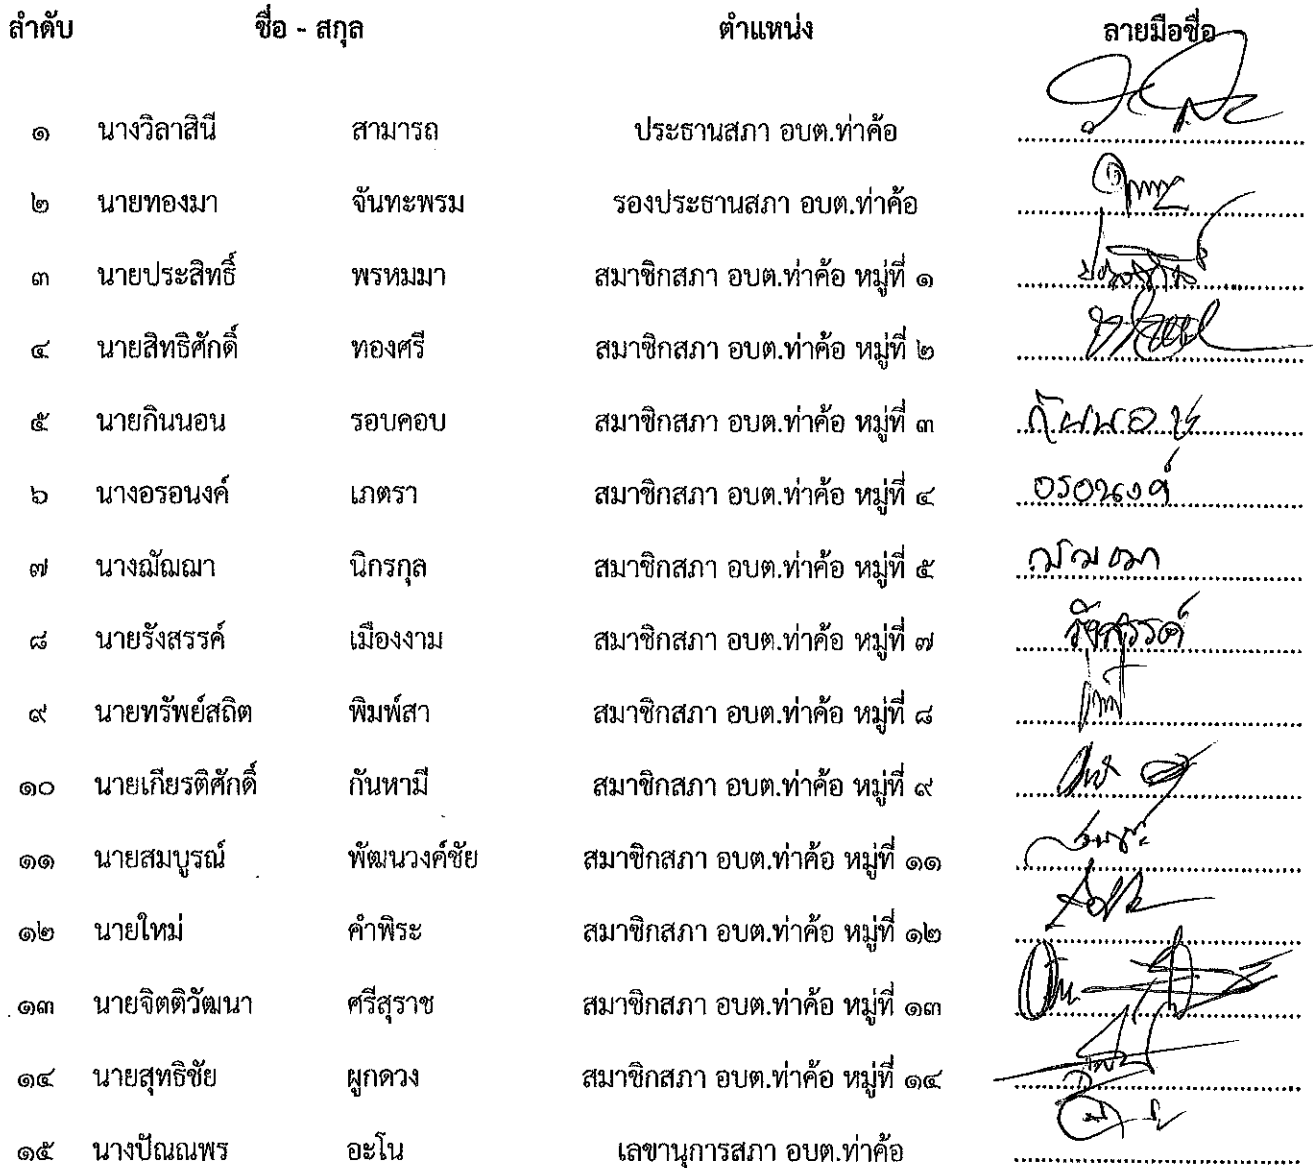 ลำดับ ชื่อ - สกุล ตำแหน่ง ลายมือชื่อ
๑ นางวิลาสินี สามารถ ประธานสภา อบต.ท่าค้อ
๒ นายทองมา จันทะพรม รองประธานสภา อบต.ท่าค้อ
๓ นายประสิทธิ์ พรหมมา สมาชิกสภา อบต.ท่าค้อ หมู่ที่ ๑
๔ นายสิทธิศักดิ์ ทองศรี สมาชิกสภา อบต.ท่าค้อ หมู่ที่ ๒
๕ นายกินนอน รอบคอบ สมาชิกสภา อบต.ท่าค้อ หมู่ที่ ๓ กินนอน
๖ นางอรอนงค์ เภตรา สมาชิกสภา อบต.ท่าค้อ หมู่ที่ ๔ อรอนงค์
๗ นางฌัณฌา นิกรกุล สมาชิกสภา อบต.ท่าค้อ หมู่ที่ ๕
๘ นายรังสรรค์ เมืองงาม สมาชิกสภา อบต.ท่าค้อ หมู่ที่ ๗ รังสรรค์
๙ นายทรัพย์สถิต พิมพ์สา สมาชิกสภา อบต.ท่าค้อ หมู่ที่ ๘
๑๐ นายเกียรติศักดิ์ กันหามี สมาชิกสภา อบต.ท่าค้อ หมู่ที่ ๙
๑๑ นายสมบูรณ์ พัฒนวงค์ชัย สมาชิกสภา อบต.ท่าค้อ หมู่ที่ ๑๑
๑๒ นายใหม่ คำพิระ สมาชิกสภา อบต.ท่าค้อ หมู่ที่ ๑๒
๑๓ นายจิตติวัฒนา ศรีสุราช สมาชิกสภา อบต.ท่าค้อ หมู่ที่ ๑๓
๑๔ นายสุทธิชัย ผูกดวง สมาชิกสภา อบต.ท่าค้อ หมู่ที่ ๑๔
๑๕ นางปัณณพร อะโน เลขานุการสภา อบต.ท่าค้อ